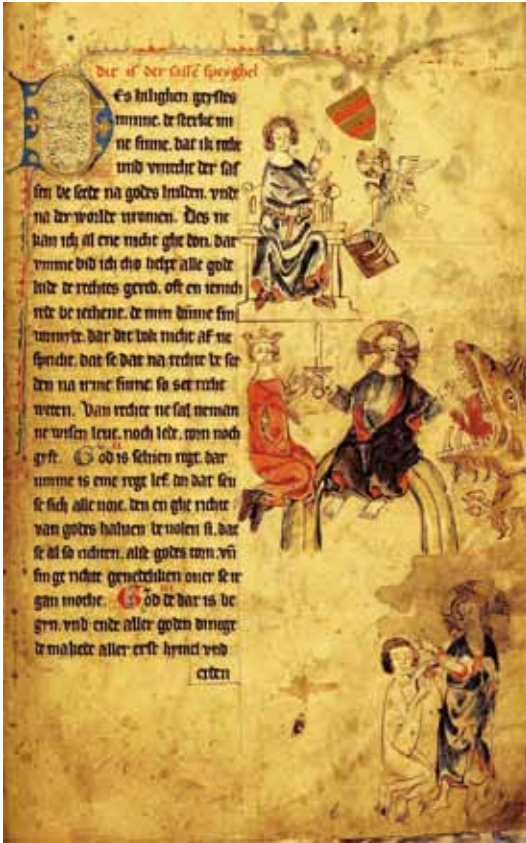 dit is der sasse speyghel
Des hilighen geystes
minne. de sterke mi
ne sinne. dat ik recht
vnd vnrecht der sas
sen be seede na godes hulden. vnde
na der worlde vromen. Des ne
kan ich al ene nicht ghe don. dar
vmme bid ich tho helpe alle gode
lude de rechtes gered. oft en ienich
rede be ieghene. de min dumme sin
vormide. dar dit bok nicht af ne
spreke. dat se dat na rechte be sce
den na irme sinne. so set recht
weten. Van rechte ne sal neman
ne wisen leue. noch lede. torn noch
gyft. God is seluen regt. dar
vmme is eme regt lef. dor dat sen
se sich alle vore. den en ghe richte
van godes haluen be volen si. dat
se al so richten. alse godes torn. vn
sin ge richte genedeliken ouer se ir
gan mothe. God de dar is be
gyn. vnd ende aller goden dinge
de makede aller erst hymel vnd
erden